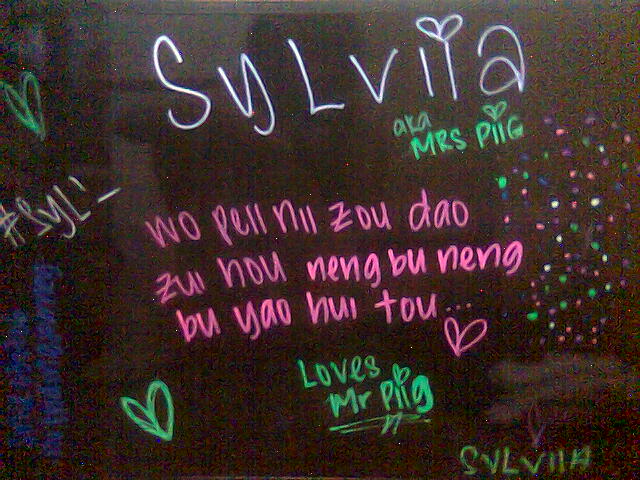 SYLVIIA
aka
MRS PIIG
#SYL'
wo peii nii zou dao
zui hou neng bu neng
bu yao hui tou...
Loves
Mr Piig
SYLVIIA